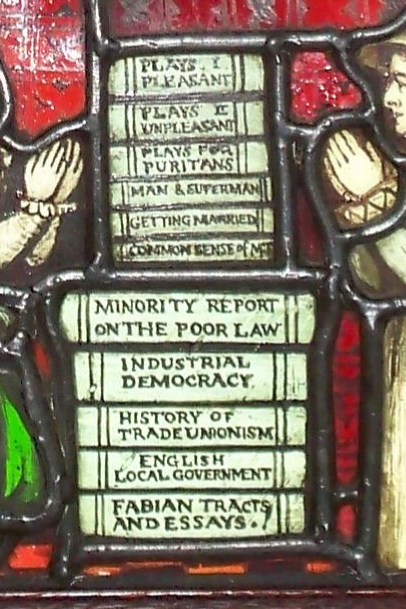 PLAYS . I
PLEASANT
PLAYS II
UNPLEASANT
PLAYS FOR
PURITANS
MAN & SUPERMAN
GETTING MARRIED
COMMON SENSE of M.T
MINORITY REPORT
ON THE POOR LAW
INDUSTRIAL
DEMOCRACY.
HISTORY OF
TRADE UNIONISM
ENGLISH
LOCAL GOVERNMENT
FABIAN TRACTS
AND ESSAYS.